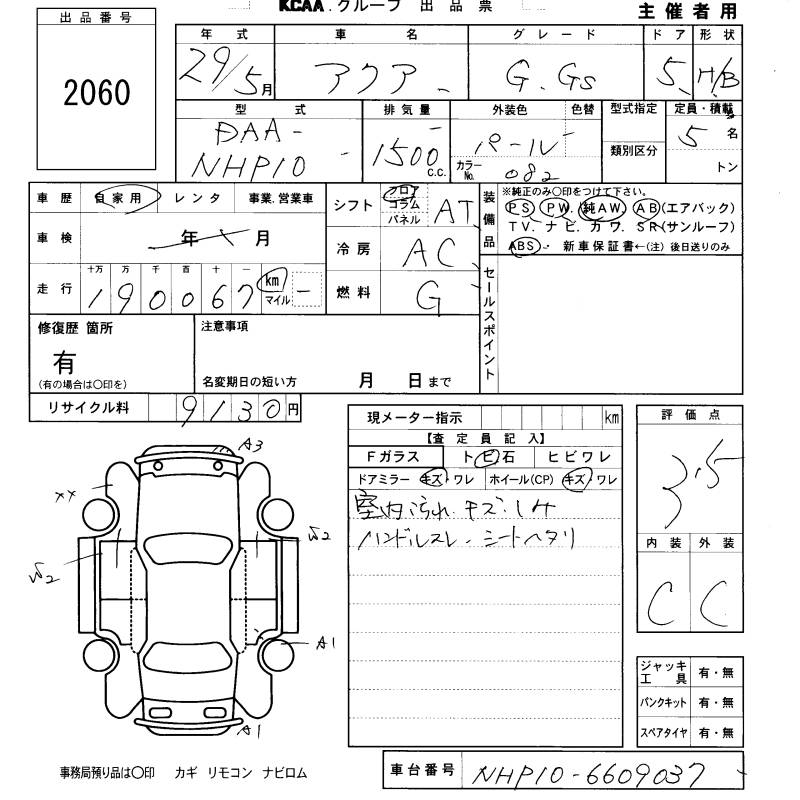 KCAA.グループ 出品票
主催者用
出品番号
2060
年式 車名 グレード ドア 形状
29/5月 アクア G.Gs 5 H/B
型式 排気量 外装色 色替 型式指定 定員・積載
DAA-NHP10 1500 C.C. パール 類別区分 5名
カラーNo. 082 トン
車歴 自家用 レンタ 事業.営業車
車検 年 月
走行 十万 万 千 百 十 一
190067 km マイル
シフト フロア コラム パネル AT
冷房 AC
燃料 G
装備品
※純正のみ○印をつけて下さい。
PS. PW. 純AW. AB(エアバック)
TV. ナビ. カワ. SR(サンルーフ)
ABS 新車保証書←(注)後日送りのみ
セールスポイント
修復歴 箇所
有
(有の場合は○印を)
注意事項
名変期日の短い方 月 日まで
リサイクル料 9130円
現メーター指示 km
【査定員記入】
Fガラス トビ石 ヒビワレ
ドアミラー キズ・ワレ ホイール(CP) キズ・ワレ
室内汚れ.キズ.シミ
ハンドルスレ.シートヘタリ
評価点
3.5
内装 外装
C C
A3
XX
A1
A1
ジャッキ工具 有・無
パンクキット 有・無
スペアタイヤ 有・無
事務局預り品は○印 カギ リモコン ナビロム
車台番号 NHP10-6609037